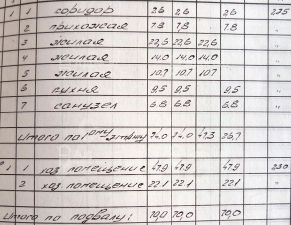 1 1 коридор 2,6 2,6 2,6 225
2 прихожая 7.8 7,8 7.8 "
3 жилая 22,6 22,6 22,6 "
4 жилая 14.0 14.0 14.0 "
5 жилая 10.7 10.7 10.7 "
6 кухня 9,5 9,5 9,5 "
7 санузел 6.8 6.8 6.8 "
Итого по 1ому этажу 74,0 74,0 47,3 26,7
1 хоз помещение 47.9 47.9 47.9 230
2 хоз помещение 22.1 22.1 22.1 "
Итого по подвалу: 70,0 70,0 70,0